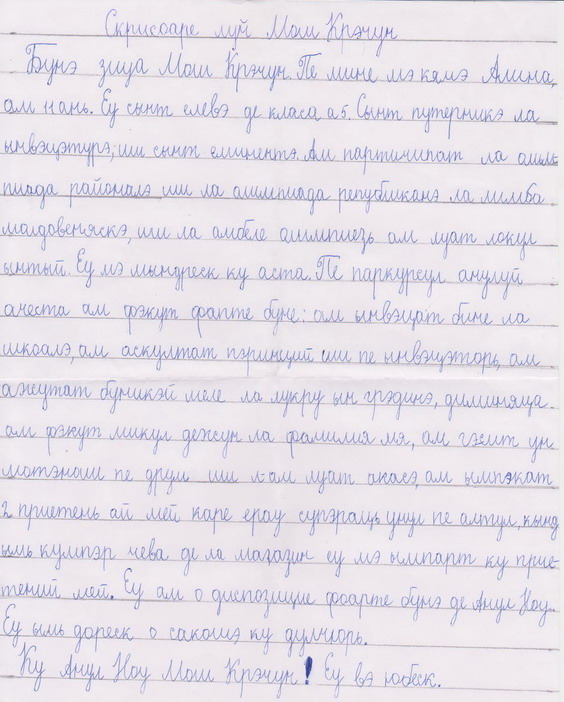 Скрисоаре луй Мош Крэчун
Бунэ зиуа Мош Крэчун. Пе мине мэ камэ Алина,
ам 11 ань. Еу сынт елевэ де класа а 5. Сынт путерникэ ла
ынвэцэтурэ; ши сынт еминентэ. Ам партичипат ла олим-
пиада районалэ ши ла олимпиада републиканэ ла лимба
молдовеняскэ, ши ла амбеле олимпиезь ам луат локул
ынтый. Еу мэ мындреск ку аста. Пе паркурсул анулуй
ачеста ам фэкут фапте буне: ам ынвэцат бине ла
школэ, ам аскултат пэринций ши пе ынвэцэторь, ам
ажеутат буникэй меле ла лукру ын грэдинэ, диминяца
ам фэкут микул дежун ла фамилия мя, ам гэсит ун
мотэнаш пе друм ши л-ам луат акасэ, ам ымпэкат
2 приетень ай мей каре ерау супэраць унул пе алтул, кынд
ымь кумпэр чева де ла магазин еу мэ ымпарт ку прие-
тений мей. Еу ам о диспозицие фоарте бунэ де Анул Ноу.
Еу ымь дореск о сакошэ ку дулчюрь.
Ку Анул Ноу Мош Крэчун! Еу вэ юбеск.